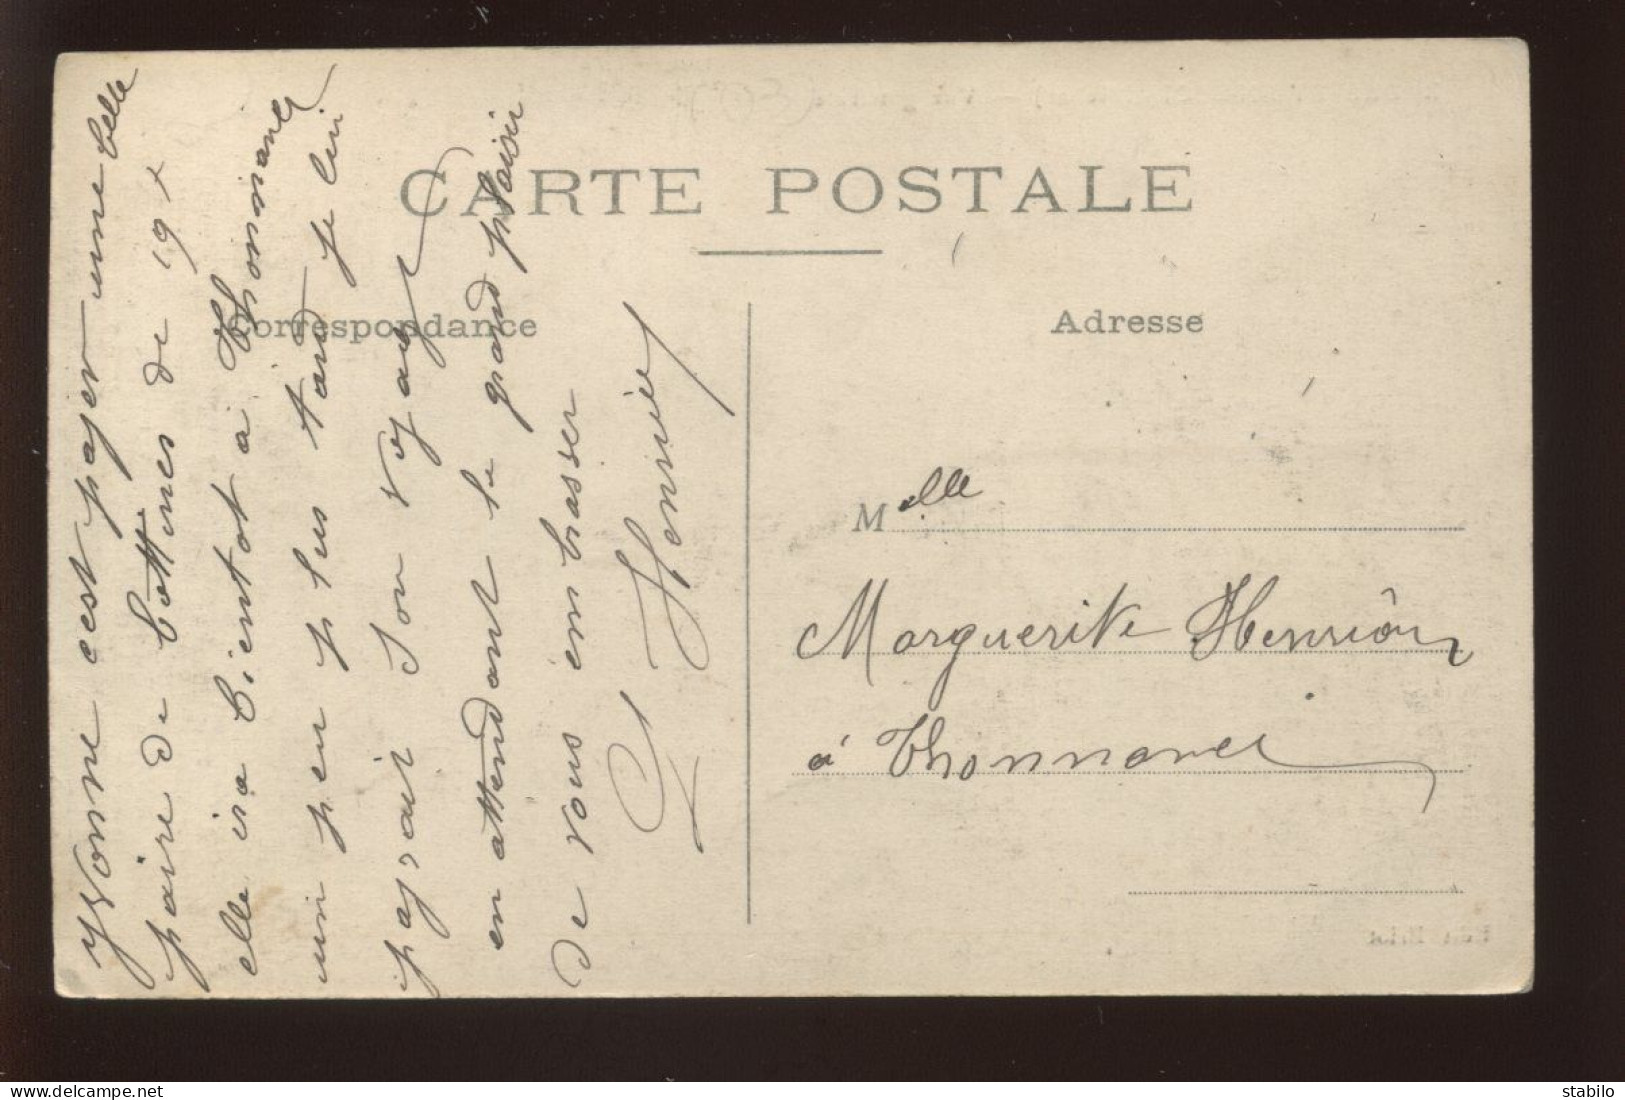 CARTE POSTALE
Correspondance
Adresse
Yvonne cest payer une belle
paire de bottines de 19 f
elle ira bientot à Thonnance
un peu plus tard je lui
payrait son voyage
en attendant le grand plaisir
de vous embrasser
Melle
Marguerite Henrion
à Thonnance
stabilo